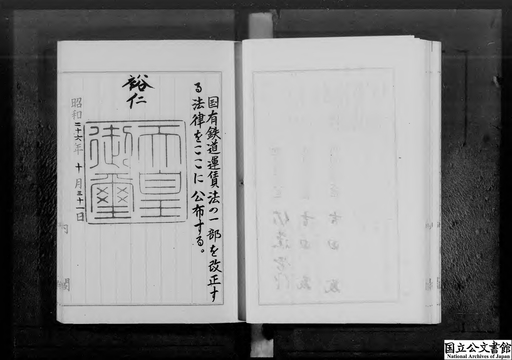 国有鉄道運賃法の一部を改正す
る法律をここに公布する。
裕仁
天皇
御璽
昭和二十六年十月三十一日
内閣
国立公文書館
National Archives of Japan